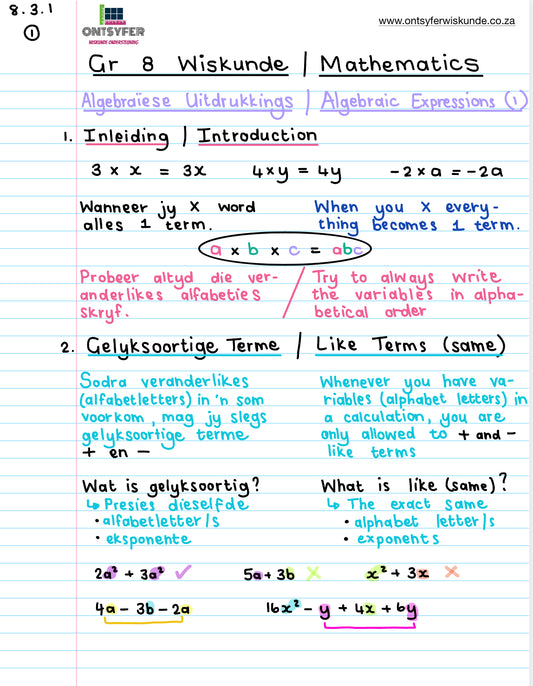 8.3.1
①
ONTSYFER
WISKUNDE ONDERSTEUNING
www.ontsyferwiskunde.co.za
Gr 8 Wiskunde | Mathematics
Algebraïese Uitdrukkings | Algebraic Expressions ①
1. Inleiding | Introduction
3 × x = 3x 4×y = 4y -2×a = -2a
Wanneer jy X word
alles 1 term.
When you X every-
thing becomes 1 term.
a × b × c = abc
Probeer altyd die ver-
anderlikes alfabeties
skryf.
Try to always write
the variables in alpha-
betical order
2. Gelyksoortige Terme | Like Terms (same)
Sodra veranderlikes
(alfabetletters) in 'n som
voorkom, mag jy slegs
gelyksoortige terme
+ en -
Whenever you have va-
riables (alphabet letters) in
a calculation, you are
only allowed to + and -
like terms
Wat is gelyksoortig?
↳ Presies dieselfde
• alfabetletter/s
• eksponente
What is like (same)?
↳ The exact same
• alphabet letter/s
• exponents
2a² + 3a² ✓ 5a + 3b ✗ x² + 3x ✗
4a - 3b - 2a 16x² - y + 4x + 6y